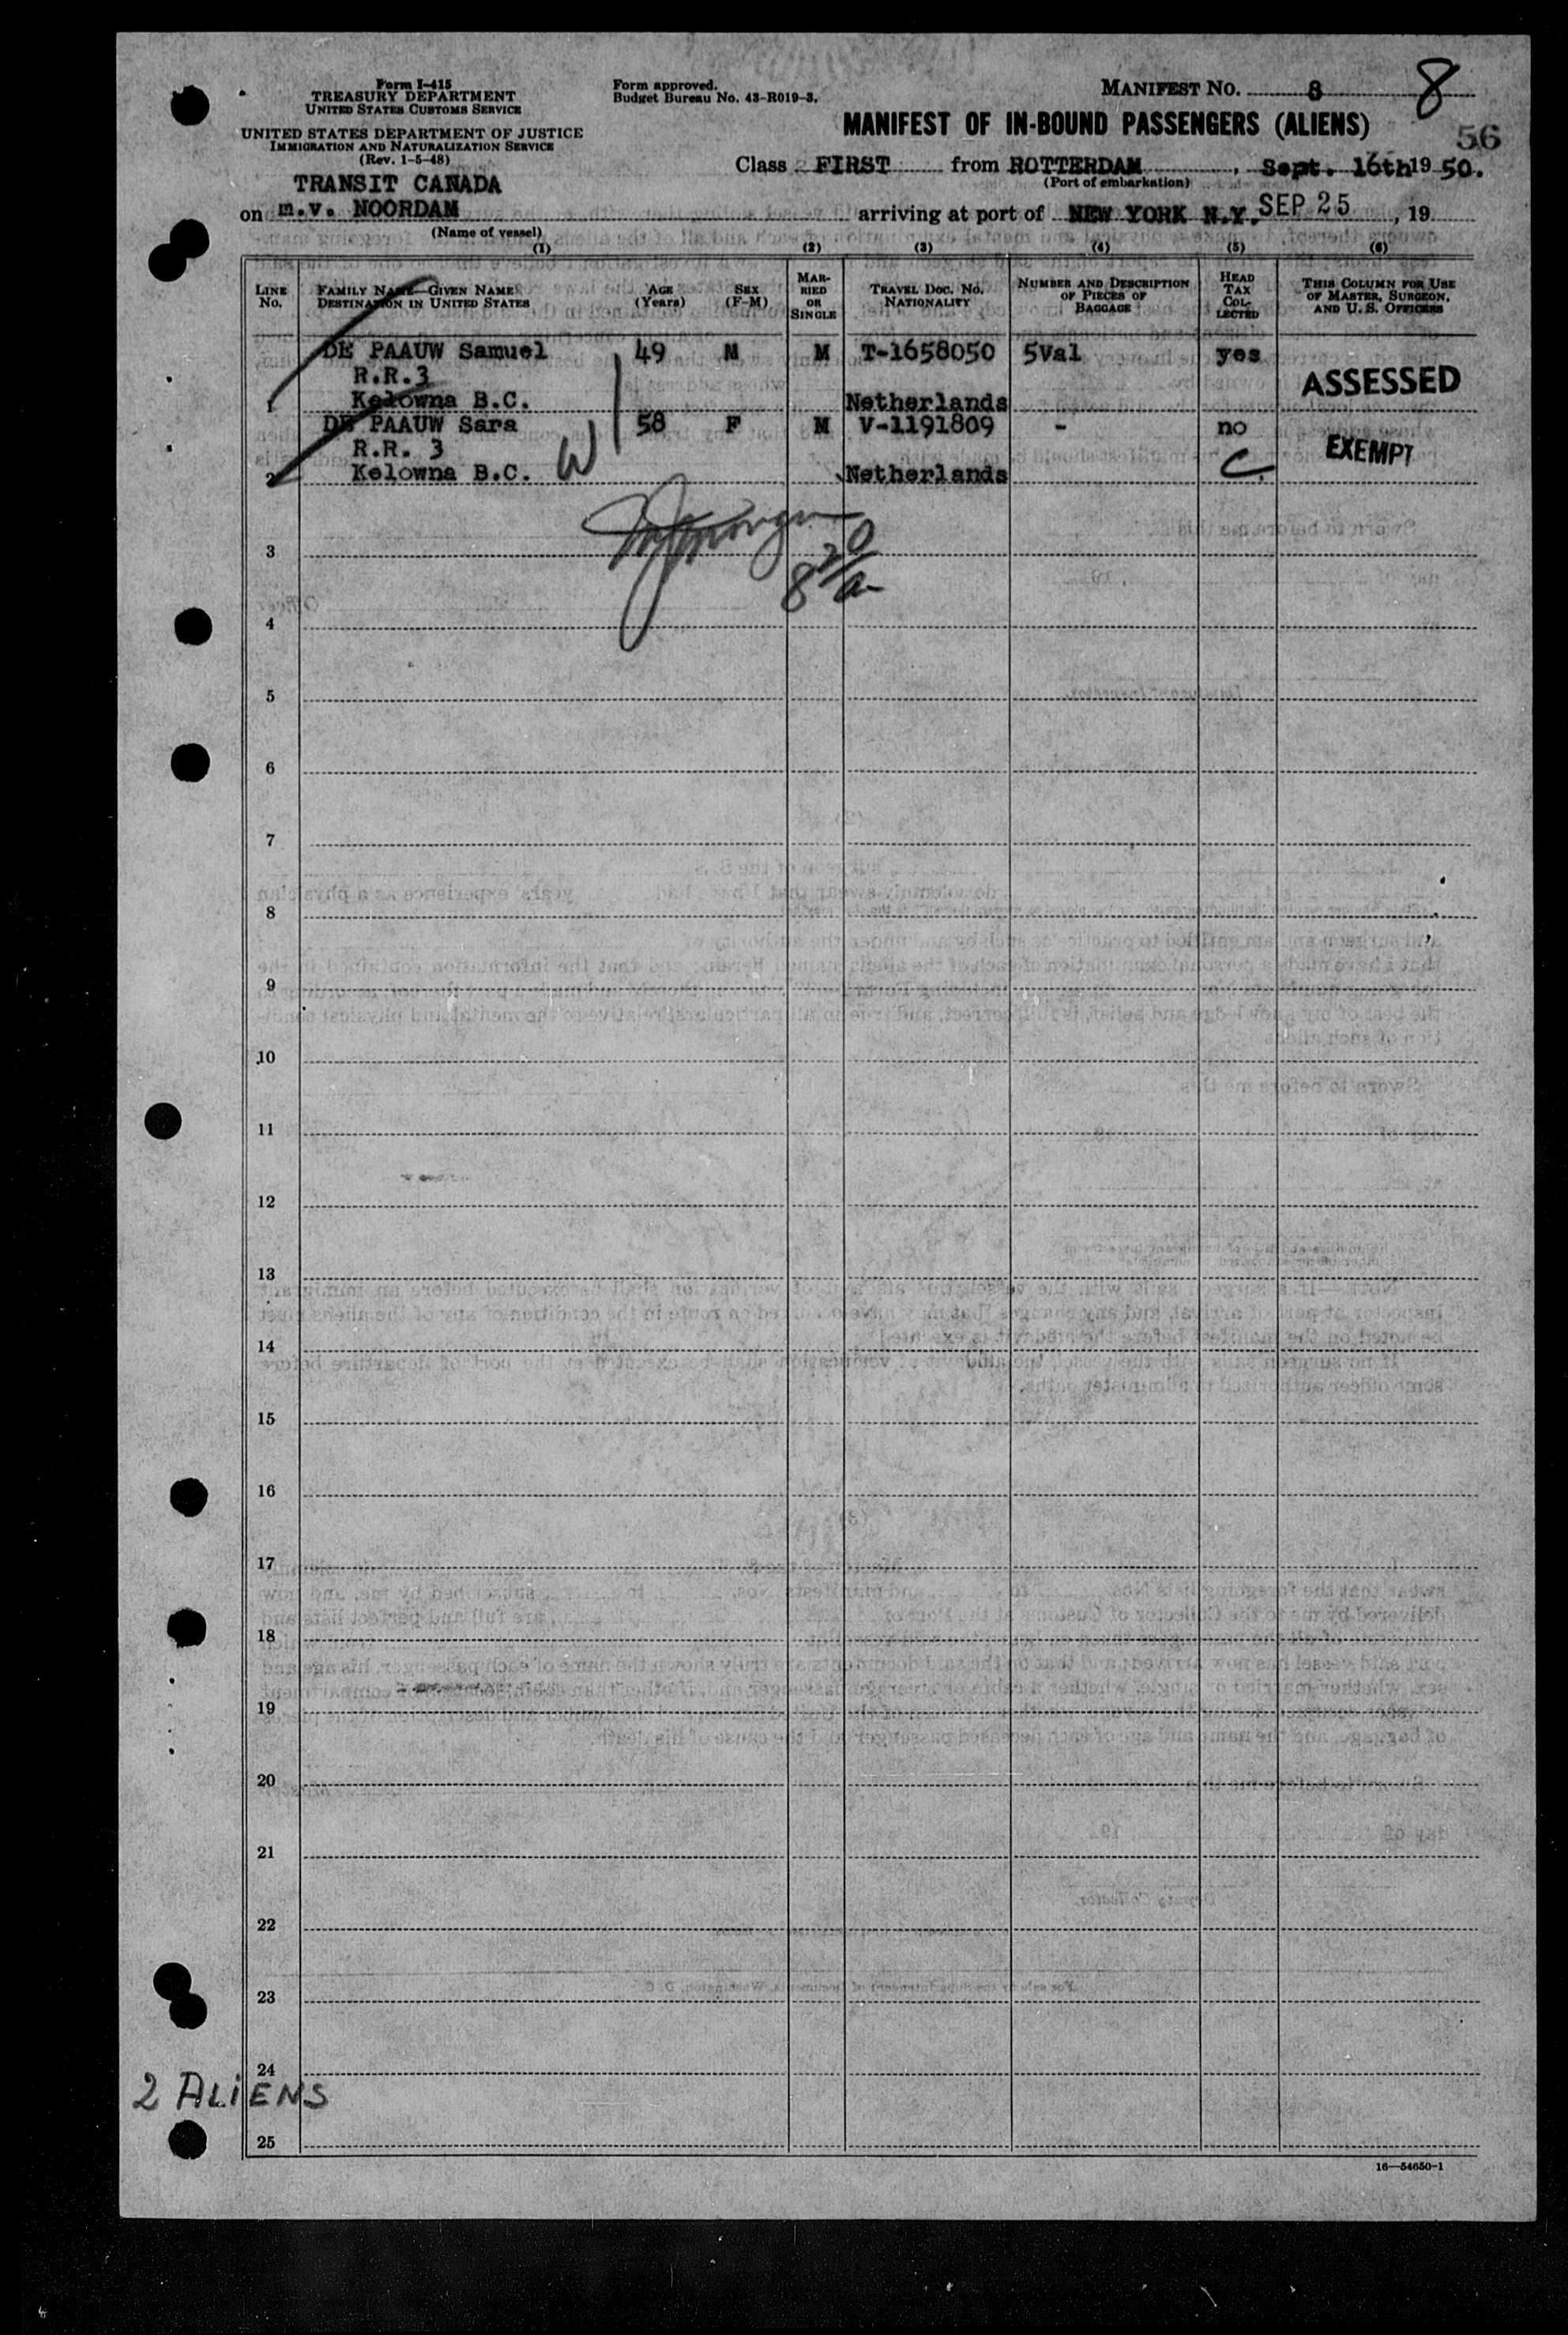 Form I-415
TREASURY DEPARTMENT
UNITED STATES CUSTOMS SERVICE
UNITED STATES DEPARTMENT OF JUSTICE
IMMIGRATION AND NATURALIZATION SERVICE
(Rev. 1-5-48)
Form approved.
Budget Bureau No. 43-R019-3.
MANIFEST NO. 8 8
MANIFEST OF IN-BOUND PASSENGERS (ALIENS)
56
Class FIRST from ROTTERDAM, Sept. 16th 19 50.
(Port of embarkation)
TRANSIT CANADA
on m.v. NOORDAM arriving at port of NEW YORK N.Y. SEP 25, 19
(Name of vessel)
(1) (2) (3) (4) (5) (6)
LINE No. FAMILY NAME—GIVEN NAME DESTINATION IN UNITED STATES AGE (Years) SEX (F-M) MARRIED OR SINGLE TRAVEL DOC. NO. NATIONALITY NUMBER AND DESCRIPTION OF PIECES OF BAGGAGE HEAD TAX COLLECTED THIS COLUMN FOR USE OF MASTER, SURGEON, AND U. S. OFFICERS
DE PAAUW Samuel 49 M M T-1658050 5Val yes
R.R.3 ASSESSED
1 Kelowna B.C. Netherlands
DE PAAUW Sara 58 F M V-1191809 - no
R.R. 3 W EXEMPT
2 Kelowna B.C. Netherlands C
8 20/a
3
4
5
6
7
8
9
10
11
12
13
14
15
16
17
18
19
20
21
22
23
24
2 ALiENS
25
16—54650-1